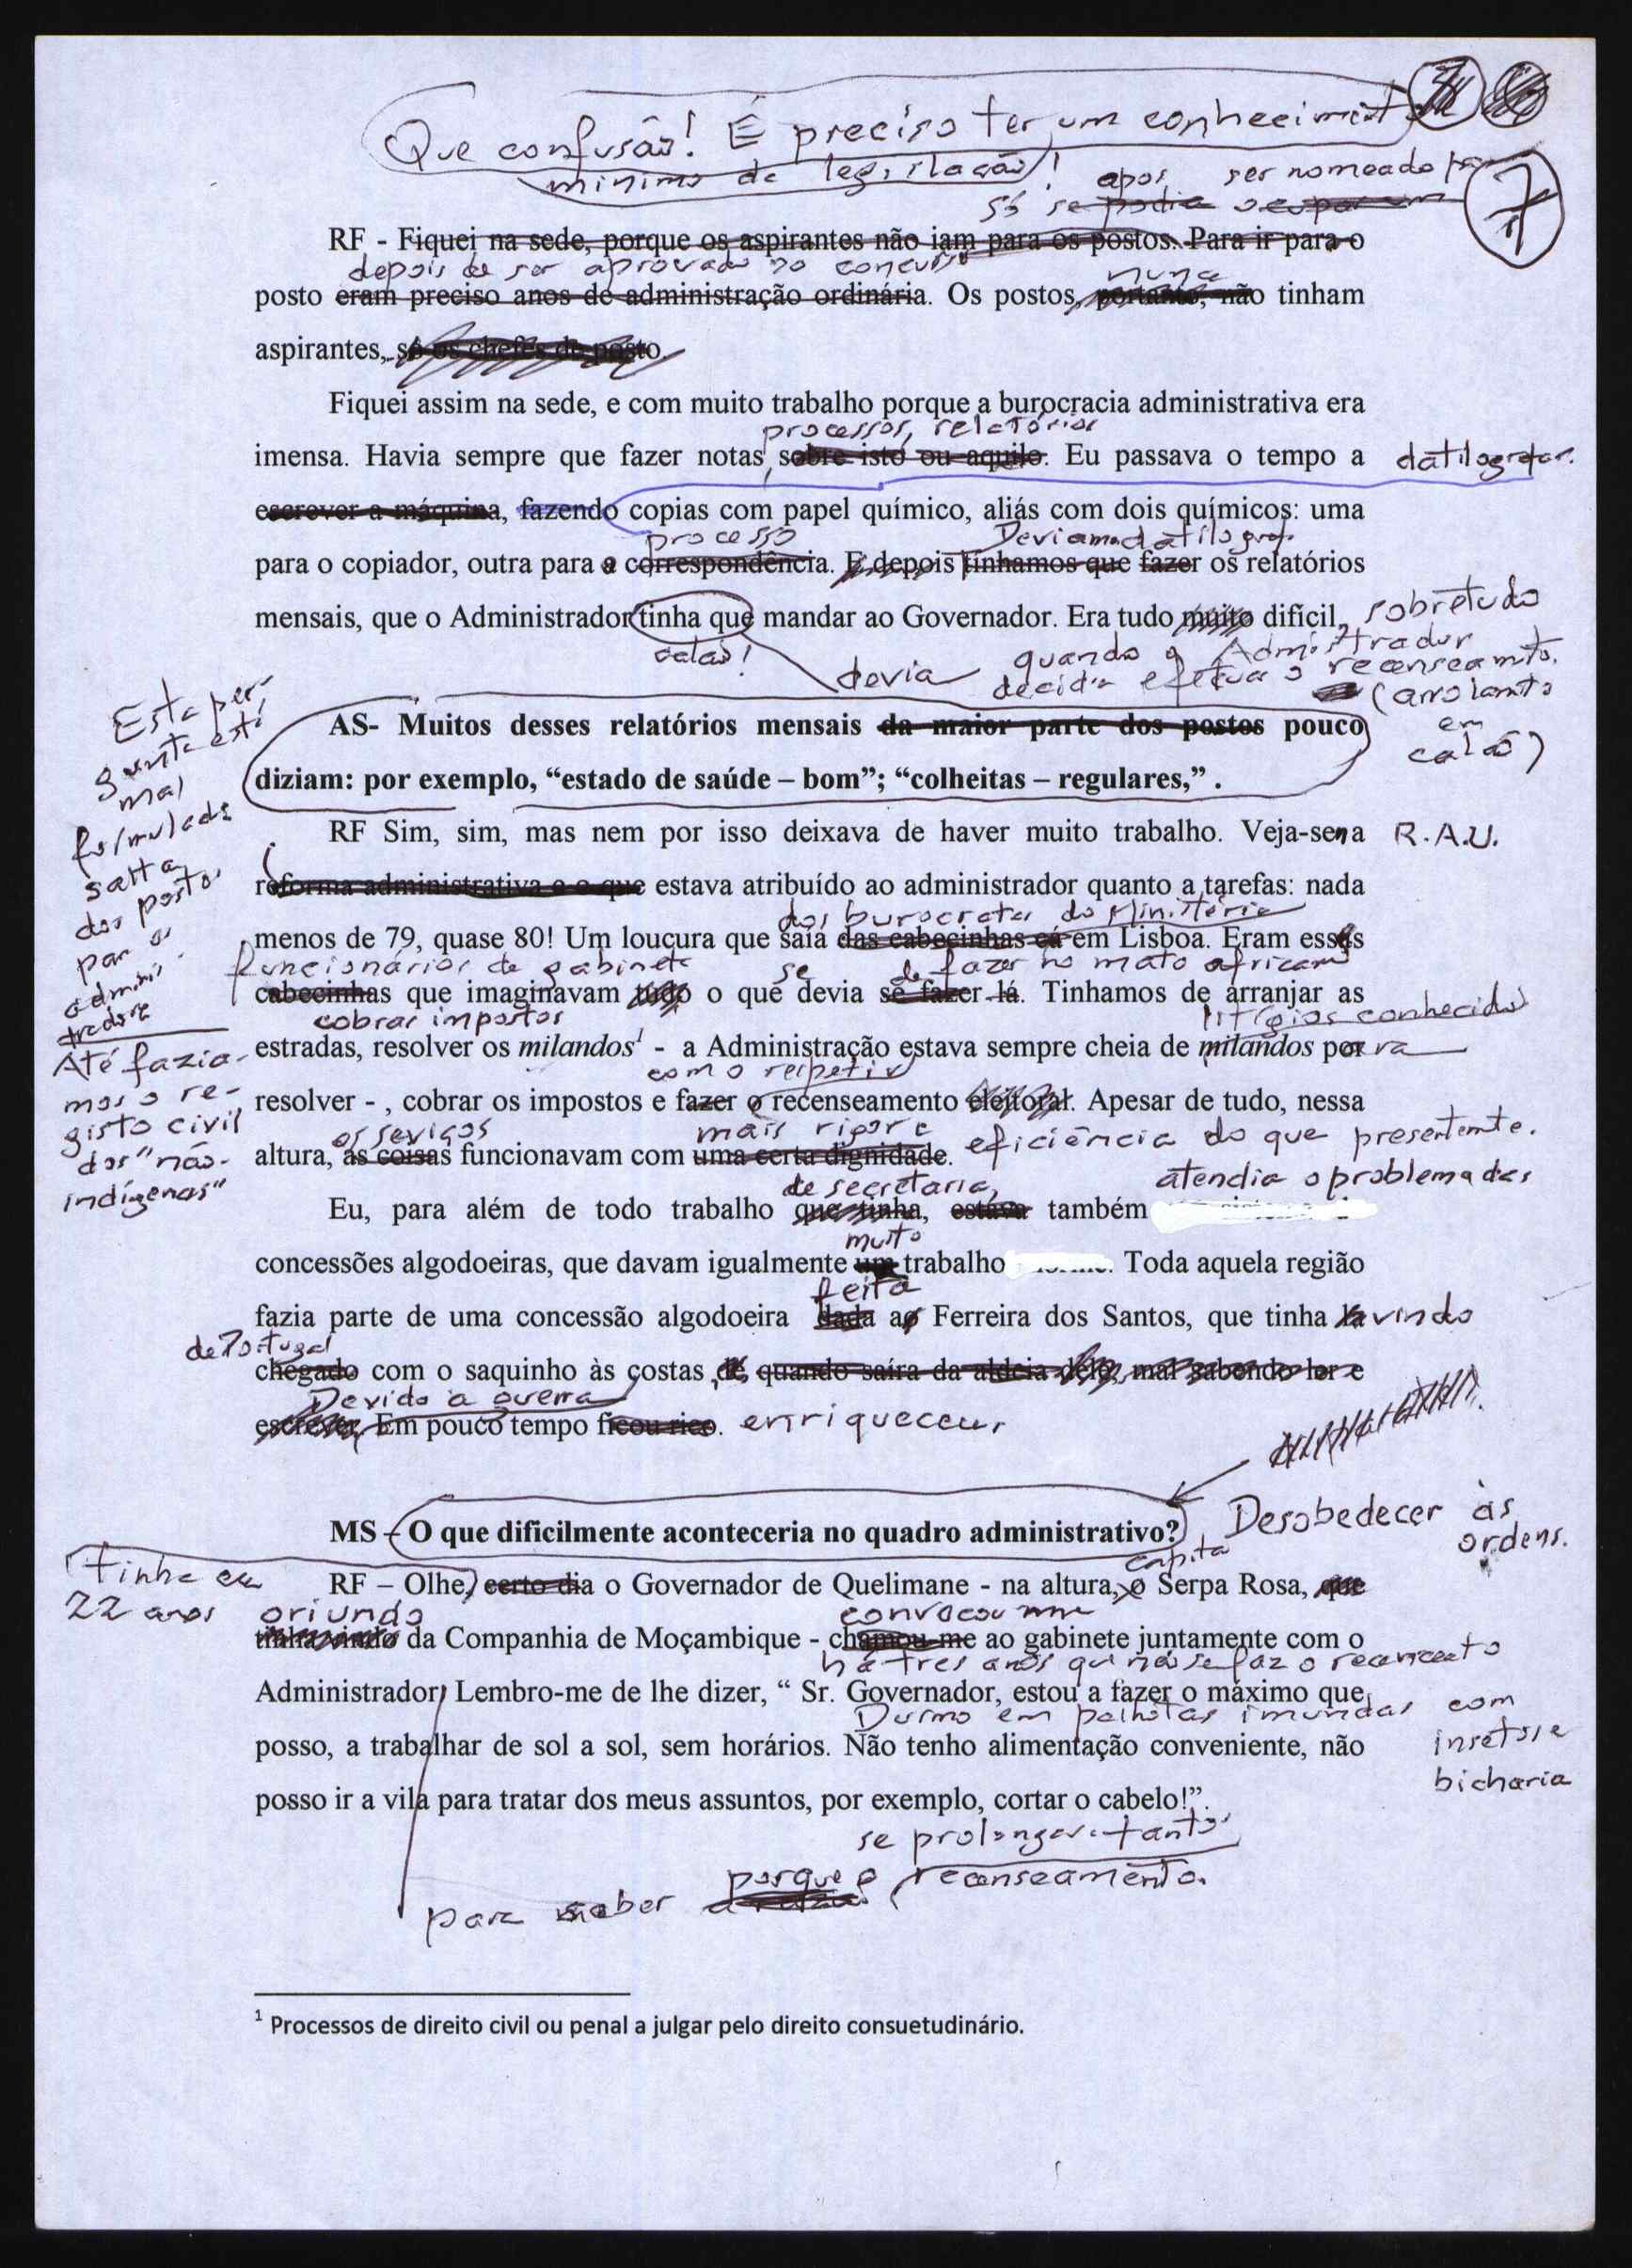 Que confusão! É preciso ter um conheciment
minimo de legislação!
7
após ser nomeado
só se podia ocupar um
RF - Fiquei na sede, porque os aspirantes não iam para os postos. Para ir para o
depois de ser aprovado no concurso
nunca
posto eram preciso anos de administração ordinária. Os postos, portanto, não tinham
aspirantes, só os chefes de posto.
Fiquei assim na sede, e com muito trabalho porque a burocracia administrativa era
processos, relatórios
imensa. Havia sempre que fazer notas, sobre isto ou aquilo. Eu passava o tempo a datilografar.
escrever a máquina, fazendo copias com papel químico, aliás com dois químicos: uma
processo
Deviam datilograf.
para o copiador, outra para a correspondência. E depois tinhamos que fazer os relatórios
mensais, que o Administrador tinha que mandar ao Governador. Era tudo muito difícil, sobretudo
calão!
devia
quando o Admistrador
decidia efetuar o recenseamto.
(arrolamto
em
calão)
Esta per-
gunta está
mal
formulada
salta
dos postos
para os
adminis-
tradores
AS- Muitos desses relatórios mensais da maior parte dos postos pouco
diziam: por exemplo, “estado de saúde – bom”; “colheitas – regulares,” .
RF Sim, sim, mas nem por isso deixava de haver muito trabalho. Veja-se na R.A.U.
reforma administrativa e o que estava atribuído ao administrador quanto a tarefas: nada
dos burocratas do Ministério
menos de 79, quase 80! Um loucura que saía das cabecinhas cá em Lisboa. Eram esses
funcionários de gabinete
se
de fazer no mato africano
cabecinhas que imaginavam tudo o que devia se fazer lá. Tinhamos de arranjar as
cobrar impostos
litígios conhecidos
estradas, resolver os milandos¹ - a Administração estava sempre cheia de milandos para
Até fazia-
mos o re-
gisto civil
dos “não-
indígenas”
como respetivo
resolver - , cobrar os impostos e fazer o recenseamento eleitoral. Apesar de tudo, nessa
os seviços
mais rigor e
altura, as coisas funcionavam com uma certa dignidade. eficiência do que presentemte.
de secretaria,
atendia o problema das
Eu, para além de todo trabalho que tinha, estava também
muito
concessões algodoeiras, que davam igualmente um trabalho Toda aquela região
feita
fazia parte de uma concessão algodoeira dada ao Ferreira dos Santos, que tinha vindo
de Portugal
chegado com o saquinho às costas, de, quando saíra da aldeia dele, mal sabendo ler e
Devido à guerra
escrever. Em pouco tempo ficou rico. enriqueceu.
MS – O que dificilmente aconteceria no quadro administrativo? Desobedecer às
ordens.
tinha eu
22 anos
capita
RF – Olhe, certo dia o Governador de Quelimane - na altura, o Serpa Rosa, que
oriundo
convocou-me
tinha vindo da Companhia de Moçambique - chamou-me ao gabinete juntamente com o
há tres anos que não se faz o recenceato
Administrador, Lembro-me de lhe dizer, “ Sr. Governador, estou a fazer o máximo que
Durmo em palhotas imundas com
insetos e
bicharia
posso, a trabalhar de sol a sol, sem horários. Não tenho alimentação conveniente, não
posso ir a vila para tratar dos meus assuntos, por exemplo, cortar o cabelo!”.
se prolongava tanto
para saber porque o recenseamento.
¹ Processos de direito civil ou penal a julgar pelo direito consuetudinário.